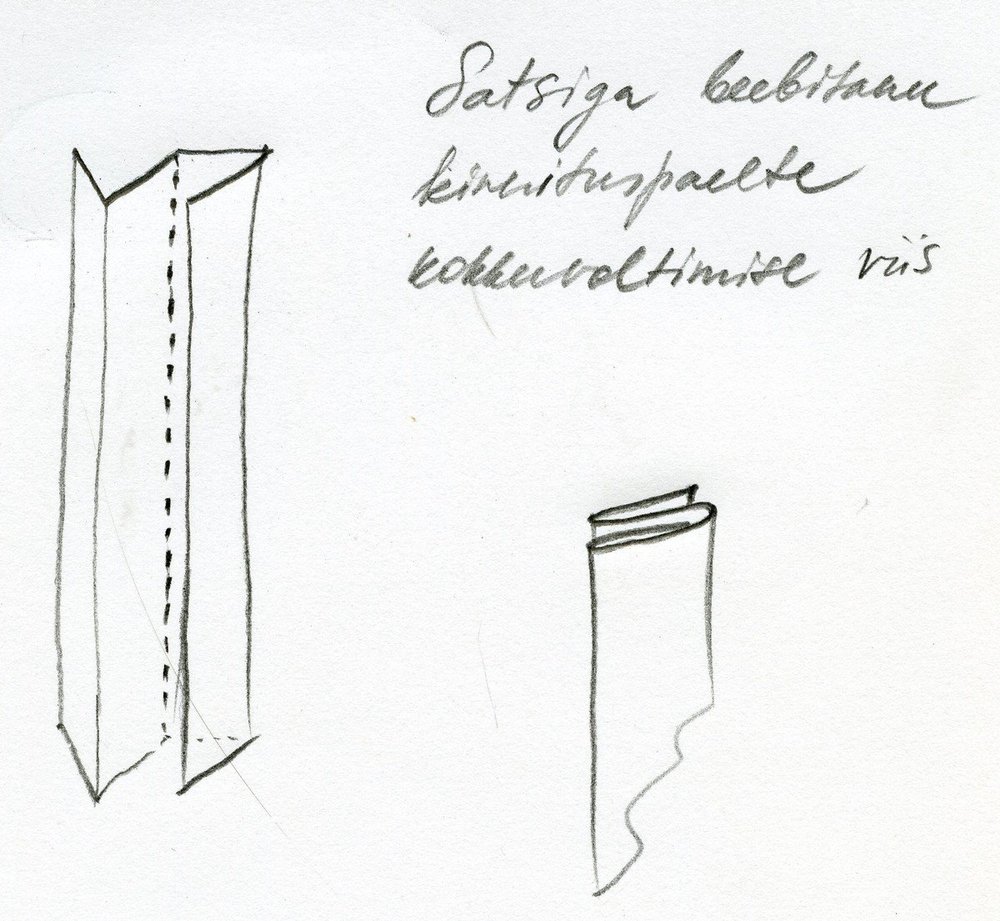 Satsiga beebitanu
kinnituspaelte
kokkuvoltimise viis